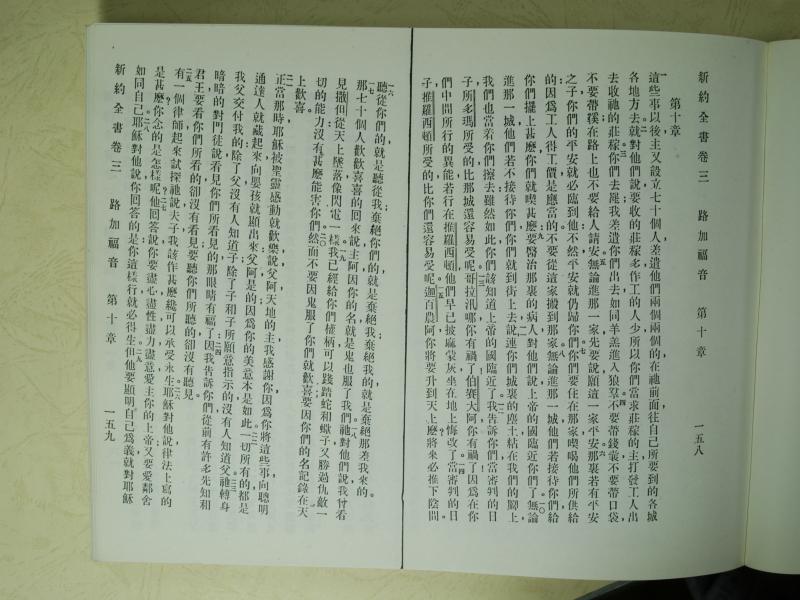 新約全書卷三　路加福音　第十章　一五八
第十章
這些事以後主又設立七十個人差遣他們兩個兩個的在祂前面往自己所要到的各城
各地方去就對他們說要收的莊稼多作工的人少所以你們當求莊稼的主打發工人出
去收祂的莊稼你們去罷我差遣你們出去如同羊羔進入狼羣不要帶錢囊不要帶口袋
不要帶鞵在路上也不要給人請安無論進那一家先要說願這一家平安那裏若有平安
之子你們的平安就必臨到他不然平安就仍歸你們你們要住在那家喫喝他們所供給
的因爲工人得工價是應當的不要從這家搬到那家無論進那一城他們若接待你們給
你們擺上甚麼你們就喫甚麼要醫治那裏的病人對他們說上帝的國臨近你們了無論
進那一城他們若不接待你們你們就到街上去說連你們城裏的塵土粘在我們的腳上
我們也當着你們擦去雖然如此你們該知道上帝的國臨近了我告訴你們當審判的日
子所多瑪所受的比那城還容易受呢哥拉汛哪你有禍了伯賽大阿你有禍了因爲在你
們中間所行的異能若行在推羅西頓他們早已披麻蒙灰坐在地上悔改了當審判的日
子推羅西頓所受的比你們還容易受呢迦百農阿你將要升到天上麼將來必推下陰間
聽從你們的就是聽從我棄絕你們的就是棄絕我棄絕我的就是棄絕那差我來的
那七十個人歡歡喜喜的回來說主阿因你的名就是鬼也服了我們祂對他們說我曾看
見撒但從天上墜落像閃電一樣我已經給你們權柄可以踐踏蛇和蠍子又勝過仇敵一
切的能力沒有甚麼能害你們然而不要因鬼服了你們就歡喜要因你們的名記錄在天
上歡喜
正當那時耶穌被聖靈感動就歡樂說父阿天地的主我感謝你因爲你將這些事向聰明
通達人就藏起來向嬰孩就顯出來父阿是的因爲你的美意本是如此一切所有的都是
我父交付我的除了父沒有人知道子除了子和子所願意指示的沒有人知道父祂轉身
暗暗的對門徒說看見你們所看見的那眼睛有福了因我告訴你們從前有許多先知和
君王要看你們所看的卻沒有看見要聽你們所聽的卻沒有聽見
有一個律師起來試探祂說夫子我該作甚麼纔可以承受永生耶穌對他說律法上寫的
是甚麼你念的是怎樣呢他回答說你要盡心盡性盡力盡意愛主你的上帝又要愛鄰舍
如同自己耶穌對他說你回答的是你這樣行就必得生但他要顯明自己爲義就對耶穌
新約全書卷三　路加福音　第十章　一五九